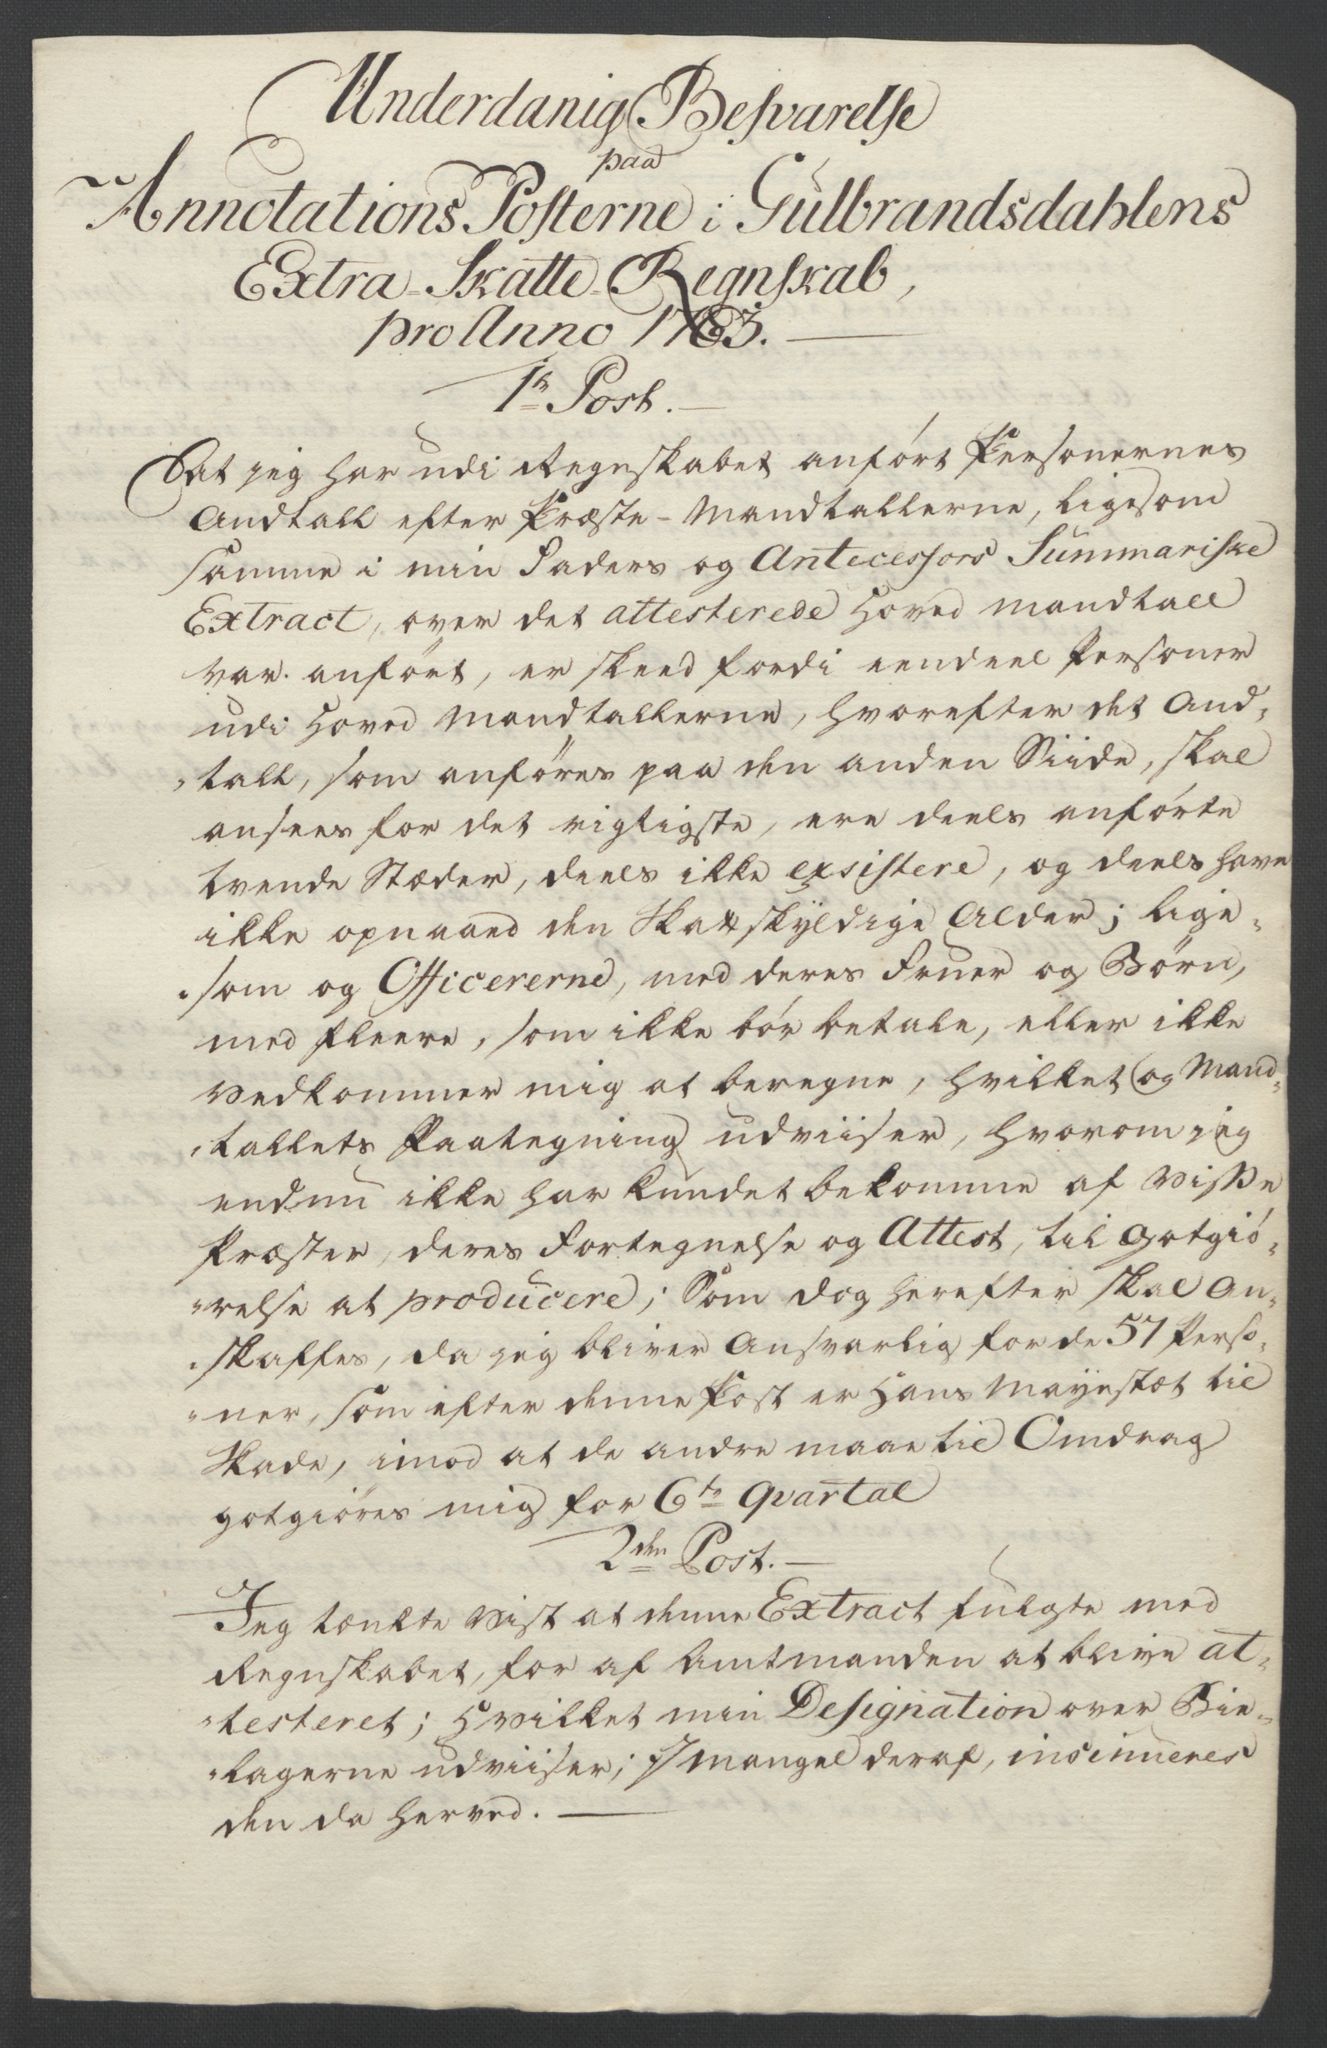 Underdanig Besvarelse
paa
Annotations Posterne i Gulbrandsdahlens
Extra-Skatte-Regnskab,
pro Anno 1763.
1te Post.
At jeg har udi Regnskabet anført Personernes
Andtall efter Præste-Mandtallerne, ligesom
samme i min Faders og Antecessors Summariske
Extract, over det attesterede Hoved Mandtall
var anført, er skeed fordi eendeel Personer
udi Hoved Mandtallerne, hvorefter det And-
tall, som anføres paa den anden Siide, skal
ansees for det rigtigste, ere deels anførte
tvende Stæder, deels ikke exsistere, og deels have
ikke opnaaed den Skatskyldige Alder; lige-
som og Officererne, med deres Fruer og Børn,
med fleere, som ikke bør betale, eller ikke
vedkommer mig at beregne, hvilket og Mand-
tallets Paategning udviiser, hvorom jeg
endnu ikke har kundet bekomme af visse
Præster, deres Fortegnelse og Attest, til Gotgiø-
relse at producere; Som dog herefter skal An-
skaffes, da jeg bliver Ansvarlig for de 57 Perso-
ner, som efter denne Post er Hans Mayestæt til
Skade, imod at de andre maae til Omdrag
gotgiøres mig for 6te Qvartal
2den Post.
Jeg tænkte vist at denne Extract fulgte med
Regnskabet, for af Amtmanden at blive at-
testeret; Hvilket min Designation over Bie-
lagerne udviiser; I mangel deraf, insinueres
den da herved.